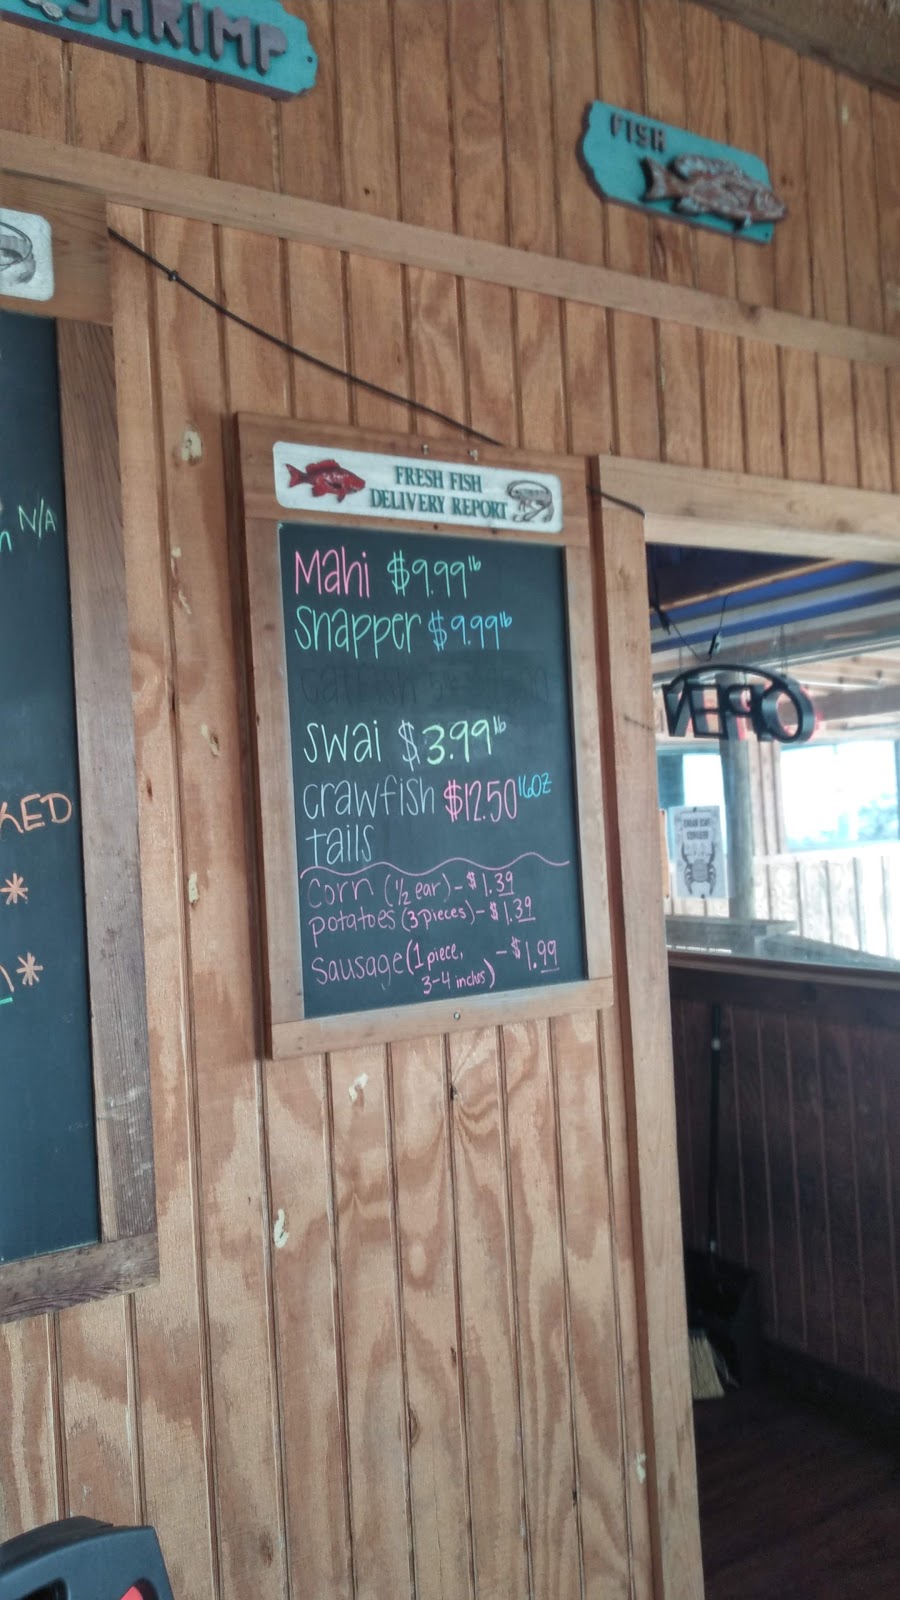 SHRIMP
FISH
N/A
FRESH FISH
DELIVERY REPORT
Mahi $9.99 lb
Snapper $9.99 lb
Catfish
Swai $3.99 lb
Crawfish $12.50 16oz
tails
Corn (1/2 ear) - $1.39
potatoes (3 pieces) - $1.39
Sausage (1 piece, - $1.99
3-4 inches)
KED
OPEN